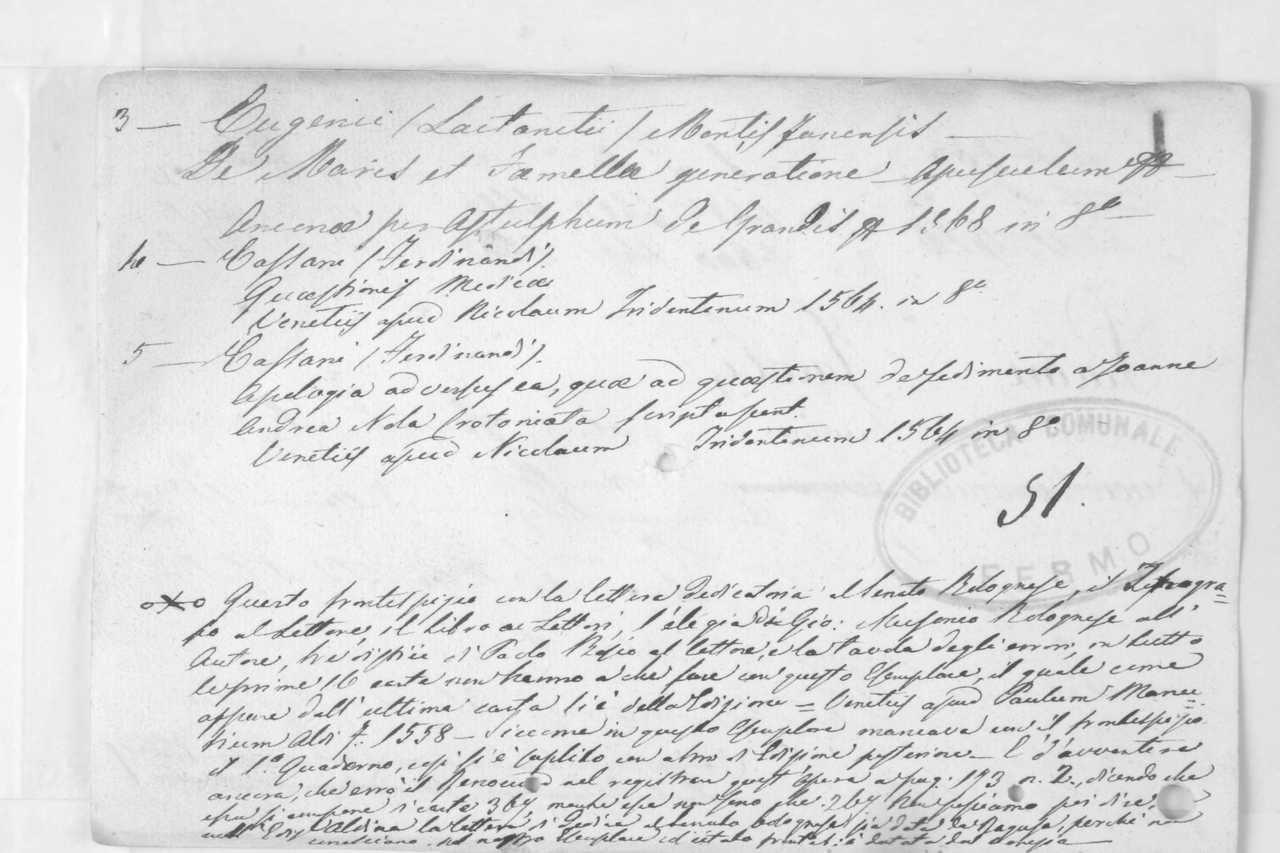 3 — Eugenii (Lactantii) Montis Sanensis —
De Maris et Fœmellæ generatione — Opusculum —
Anconæ per Astulphum de Grandis 1568 in 8º —
4 — Cassani (Ferdinandi).
Quæstiones Medicæ
Venetiis apud Nicolaum Tridentenum 1564. in 8º
5 — Cassani (Ferdinandi).
Apologia adversus ea, quæ ad quæstionem de sedimento a Joanne
Andrea Nola Crotoniata scripta sunt.
Venetiis apud Nicolaum Tridentenum 1564 in 8º —
BIBLIOTECA COMUNALE
FERMO
51.
Questo frontespizio con la lettera dedicatoria al Senato Bolognese, il Tipogra=
fo al Lettore, il Libro ai Lettori, l'elegia di Gio: Bolognese all'
Autore, tre distici di Paolo al lettore, e la tavola degli errori, in tutto
le prime 16 carte non hanno a che fare con questo Esemplare, il quale come
appare dall'ultima carta si è della Edizione = Venetiis apud Paulum Manu=
tium Aldi f. 1558 — Siccome in questo Esemplare mancava con il frontespizio
il 1º Quaderno, così si è supplito con altro di Edizione posteriore — È d'avvertire
ancora, che errò il Renouard nel registrar quest'Opera a pag. 173 n. 2, dicendo che
essa si compone di carte 367, mentre essa non sono che 267
Aldina la lettera di Dedica al senato bolognese è data da Ragusa, perchè
nel nostro Esemplare è datata da Venezia